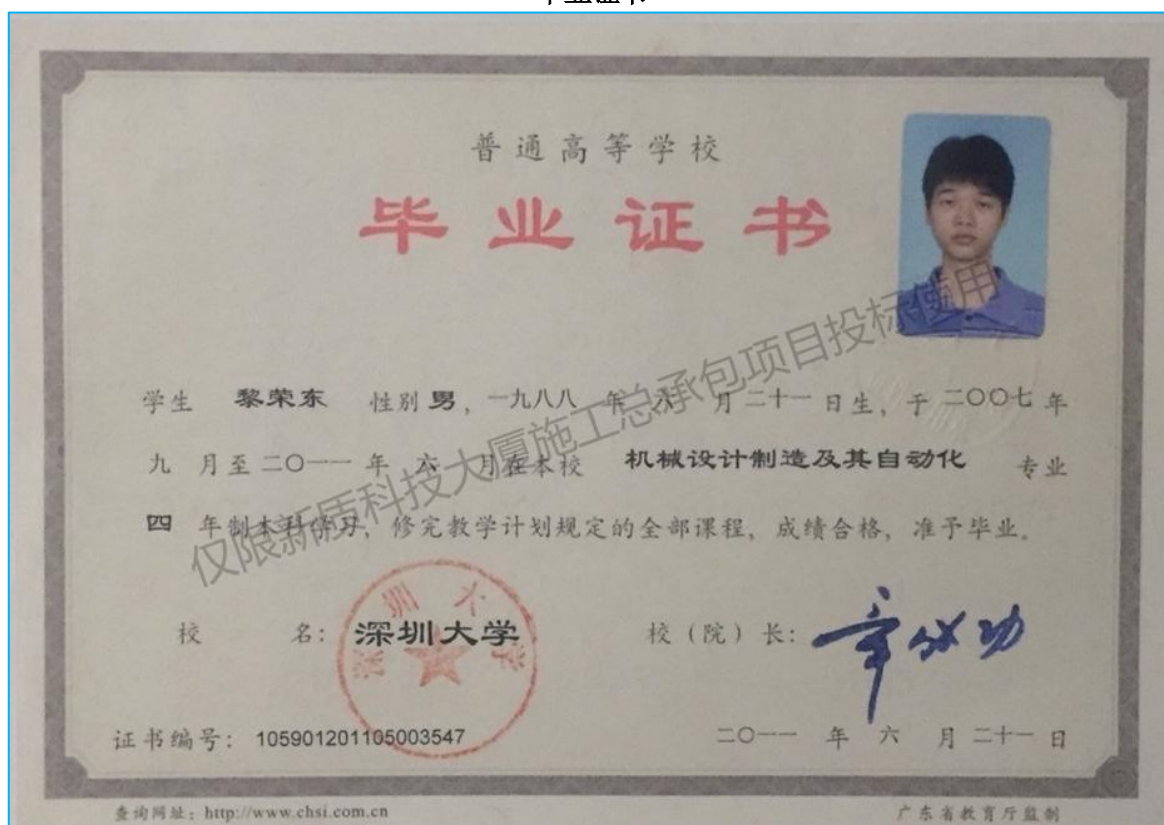 毕业证书
普通高等学校
毕业证书
学生 黎荣东 性别 男，一九八八 年 六 月 二十一 日生，于 二〇〇七 年
九 月至 二〇一一 年 六 月在本校 机械设计制造及其自动化 专业
四 年制本科学习，修完教学计划规定的全部课程，成绩合格，准予毕业。
仅限新质科技大厦施工总承包项目投标使用
深圳大学
校 名：深圳大学 校（院）长：章必功
证书编号：105901201105003547 二〇一一 年 六 月 二十一 日
查询网址：http://www.chsi.com.cn 广东省教育厅监制